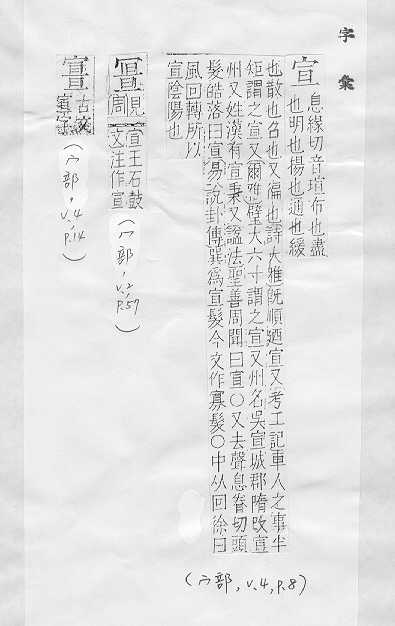 字彙
宣 息緣切音瑄布也盡
也明也揚也通也緩
也散也召也又徧也詩大雅旣順廼宣又考工記車人之事半
矩謂之宣又爾雅璧大六寸謂之宣又州名吳宣城郡隋改宣
州又姓漢有宣秉又諡法聖善周聞曰宣〇又去聲息眷切頭
髮皓落曰宣易說卦傳巽爲宣髮今文作寡髮〇中从回徐曰
風回轉所以
宣陰陽也
(宀部, v.4, p.8)
見周
宣王石鼓
文注作宣
(宀部, v.2, p.57)
古文
(宀部, v.4, p.14)